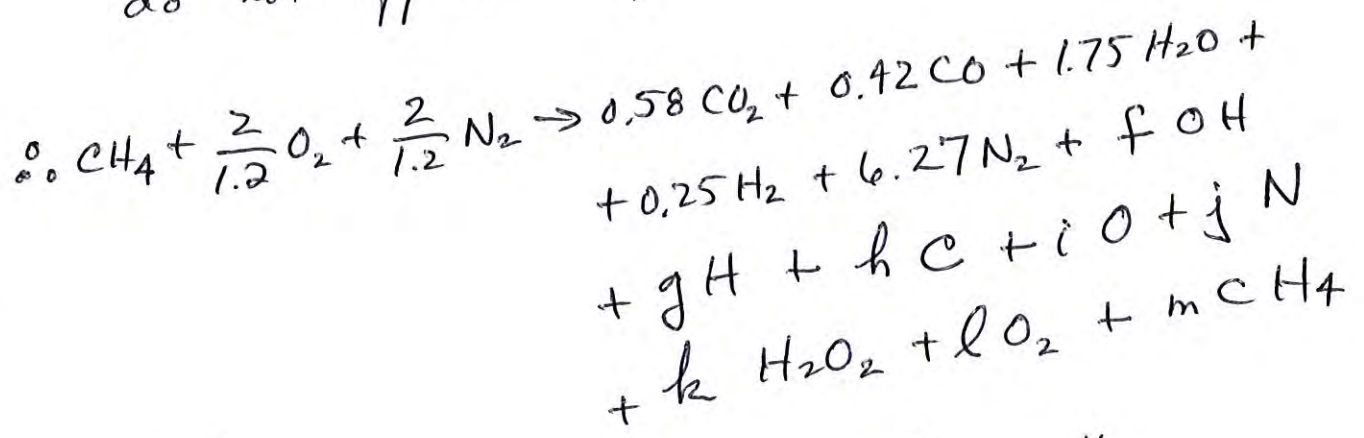 ∴ CH₄ + 2/1.2 O₂ + 2/1.2 N₂ → 0.58 CO₂ + 0.42 CO + 1.75 H₂O +
+ 0.25 H₂ + 6.27 N₂ + f OH
+ g H + h C + i O + j N
+ k H₂O₂ + l O₂ + m CH₄